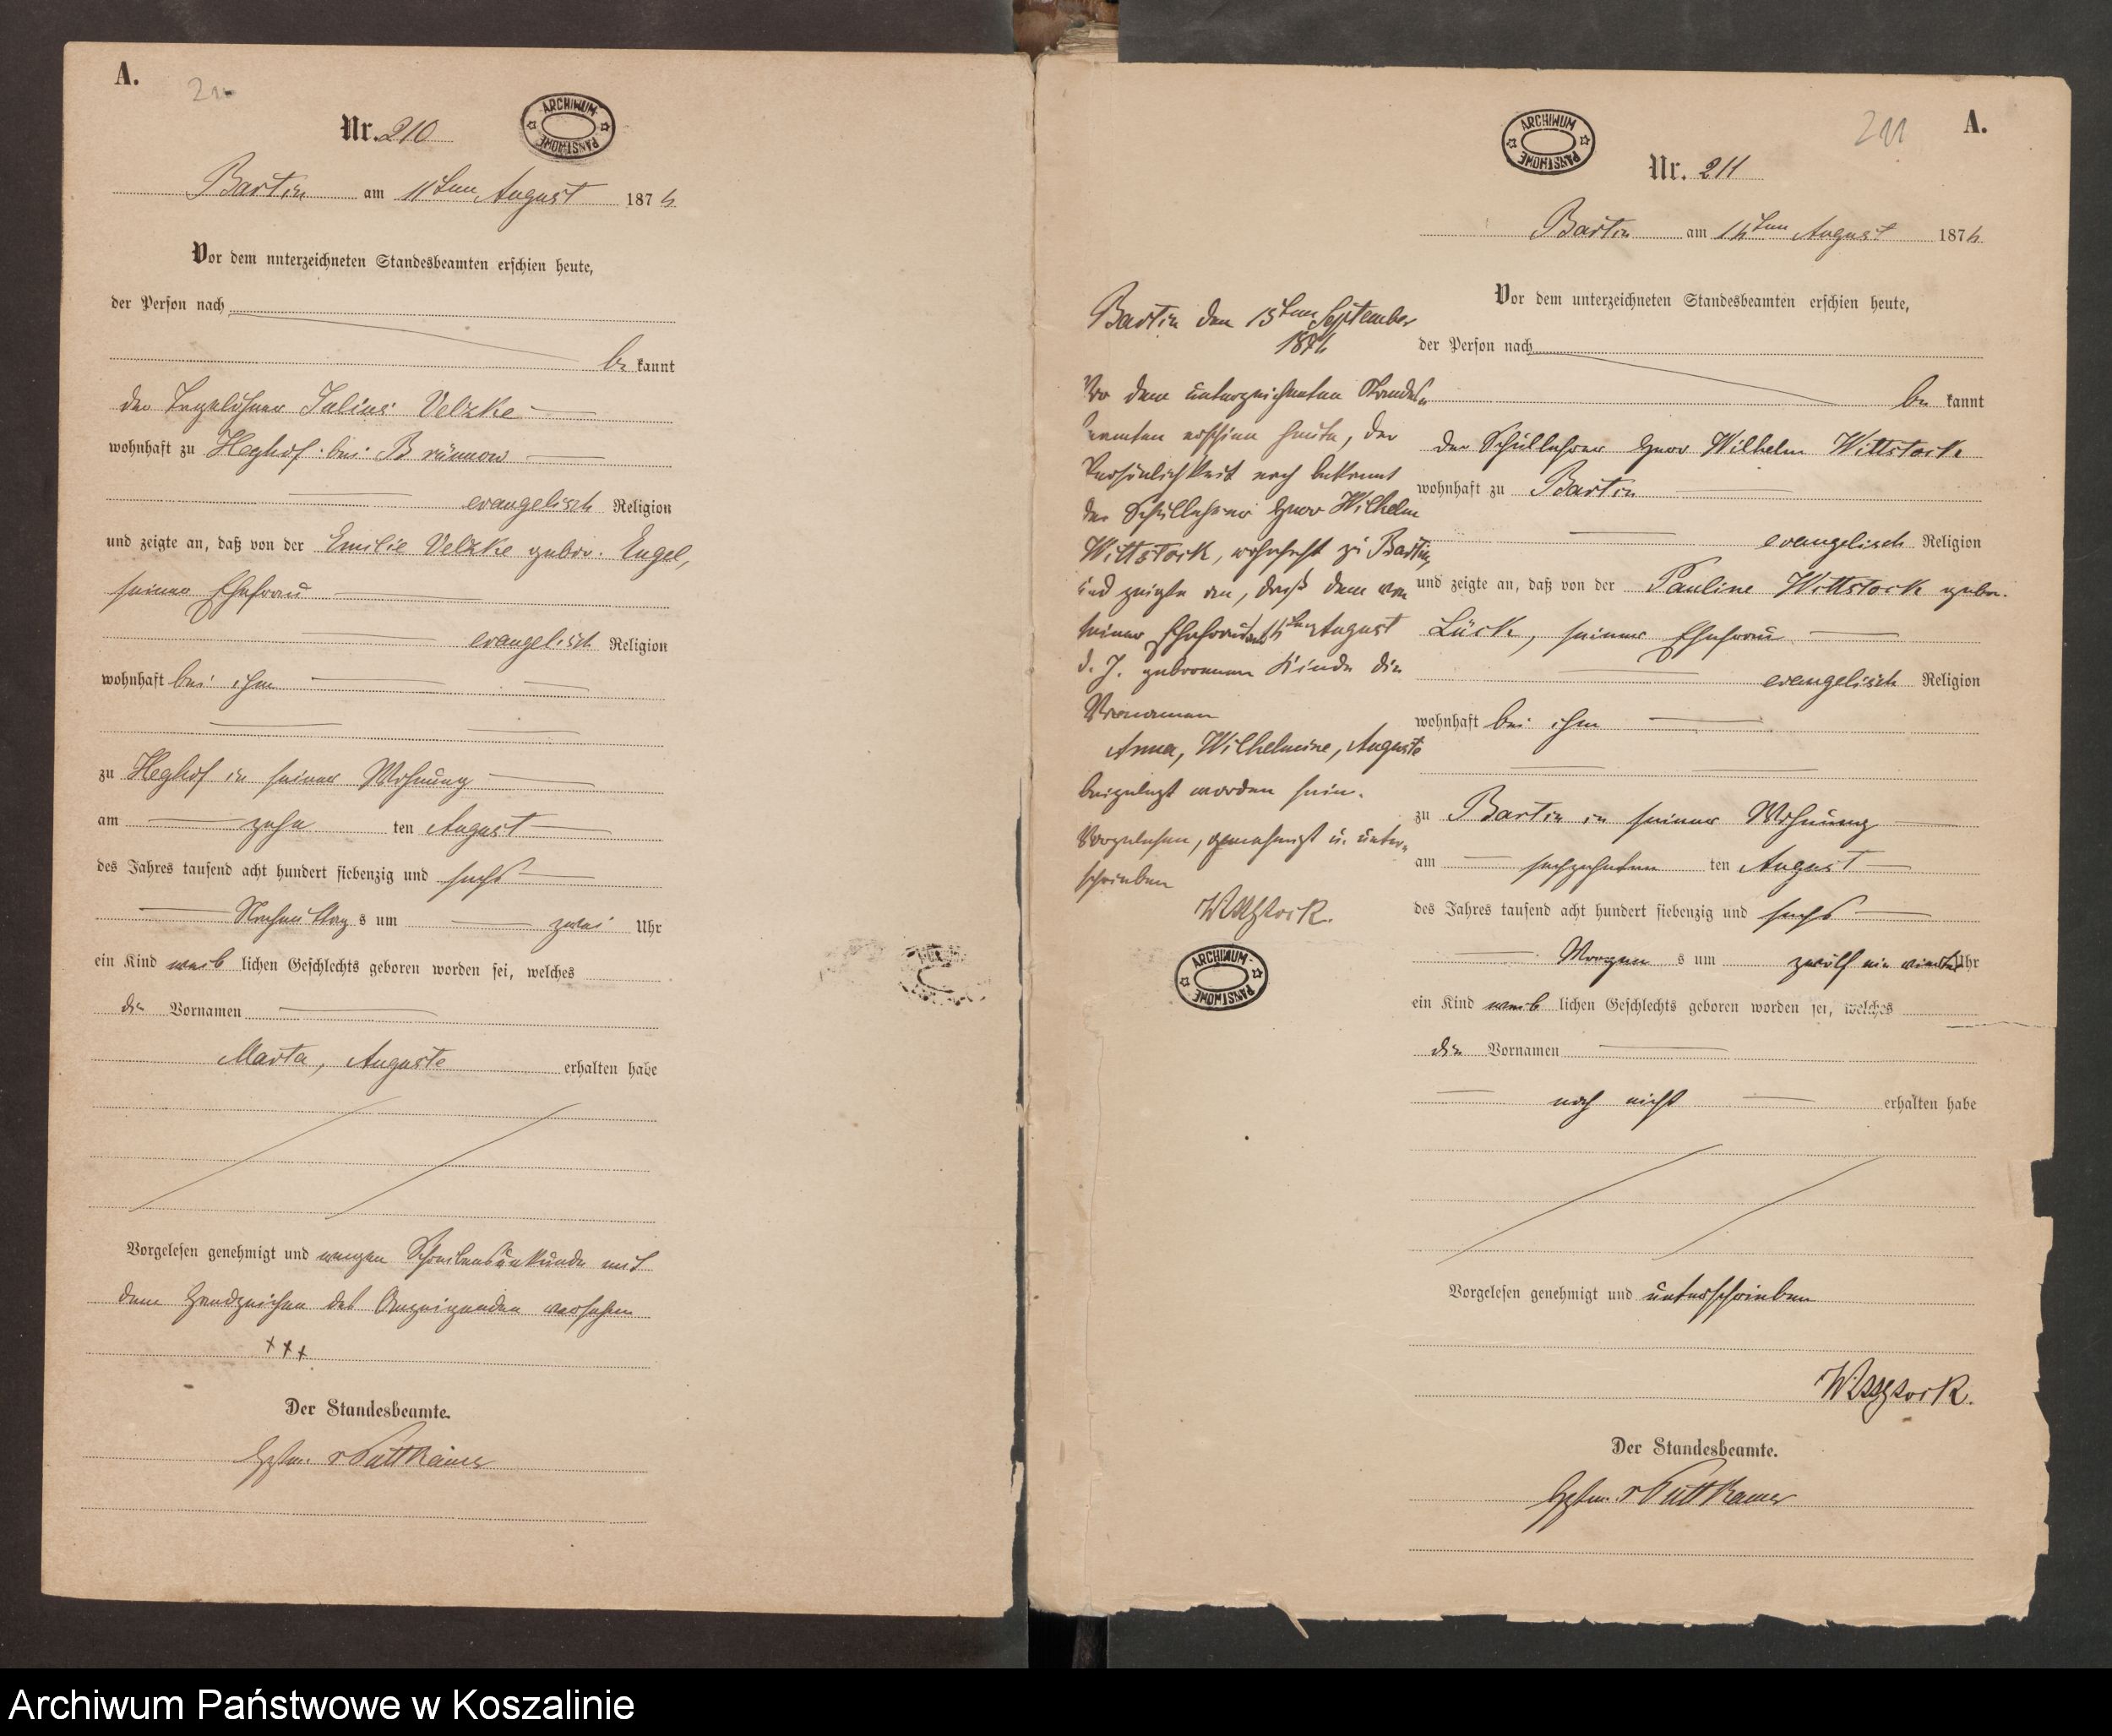 A.
211
Nr. 210
ARCHIWUM PAŃSTWOWE
Bartin am 11ten August 1876
Vor dem unterzeichneten Standesbeamten erschien heute,
der Person nach
be kannt
der Tagelöhner Julius Velzke
wohnhaft zu Heghof bei Brünnow
evangelisch Religion
und zeigte an, daß von der Emilie Velzke gebor. Engel,
seiner Ehefrau
evangelisch Religion
wohnhaft bei ihm
zu Heghof in seiner Wohnung
am zehn ten August
des Jahres tausend acht hundert siebenzig und sechs
Nachmittag s um zwei Uhr
ein Kind weib lichen Geschlechts geboren worden sei, welches
die Vornamen
Marta, Auguste erhalten habe
Vorgelesen genehmigt und wegen Schreibensunkunde mit
dem Handzeichen des Anzeigenden versehen
+++
Der Standesbeamte.
v Puttkamer
A.
211
ARCHIWUM PAŃSTWOWE
Nr. 211
Bartin am 16ten August 1876
Vor dem unterzeichneten Standesbeamten erschien heute,
der Person nach
be kannt
der Schullehrer Herr Wilhelm Wittstock
wohnhaft zu Bartin
evangelisch Religion
und zeigte an, daß von der Pauline Wittstock gebor.
Lück, seiner Ehefrau
evangelisch Religion
wohnhaft bei ihm
zu Bartin in seiner Wohnung
am sechzehnten ten August
des Jahres tausend acht hundert siebenzig und sechs
Morgen s um zwölf ein viertel Uhr
ein Kind weib lichen Geschlechts geboren worden sei, welches
die Vornamen
noch nicht erhalten habe
Vorgelesen genehmigt und unterschrieben
Wittstock.
Der Standesbeamte.
v Puttkamer
Bartin den 15ten September
1876
Vor dem unterzeichneten Standes-
beamten erschien heute, der
Persönlichkeit nach bekannt
der Schullehrer Herr Wilhelm
Wittstock, wohnhaft zu Bartin,
und zeigte an, daß dem von
seiner Ehefrau am 16ten August
d. J. geborenen Kinde die
Vornamen
Anna, Wilhelmine, Auguste
beigelegt worden sein.
Vorgelesen, genehmigt u. unter-
schrieben
Wittstock.
ARCHIWUM PAŃSTWOWE
Archiwum Państwowe w Koszalinie